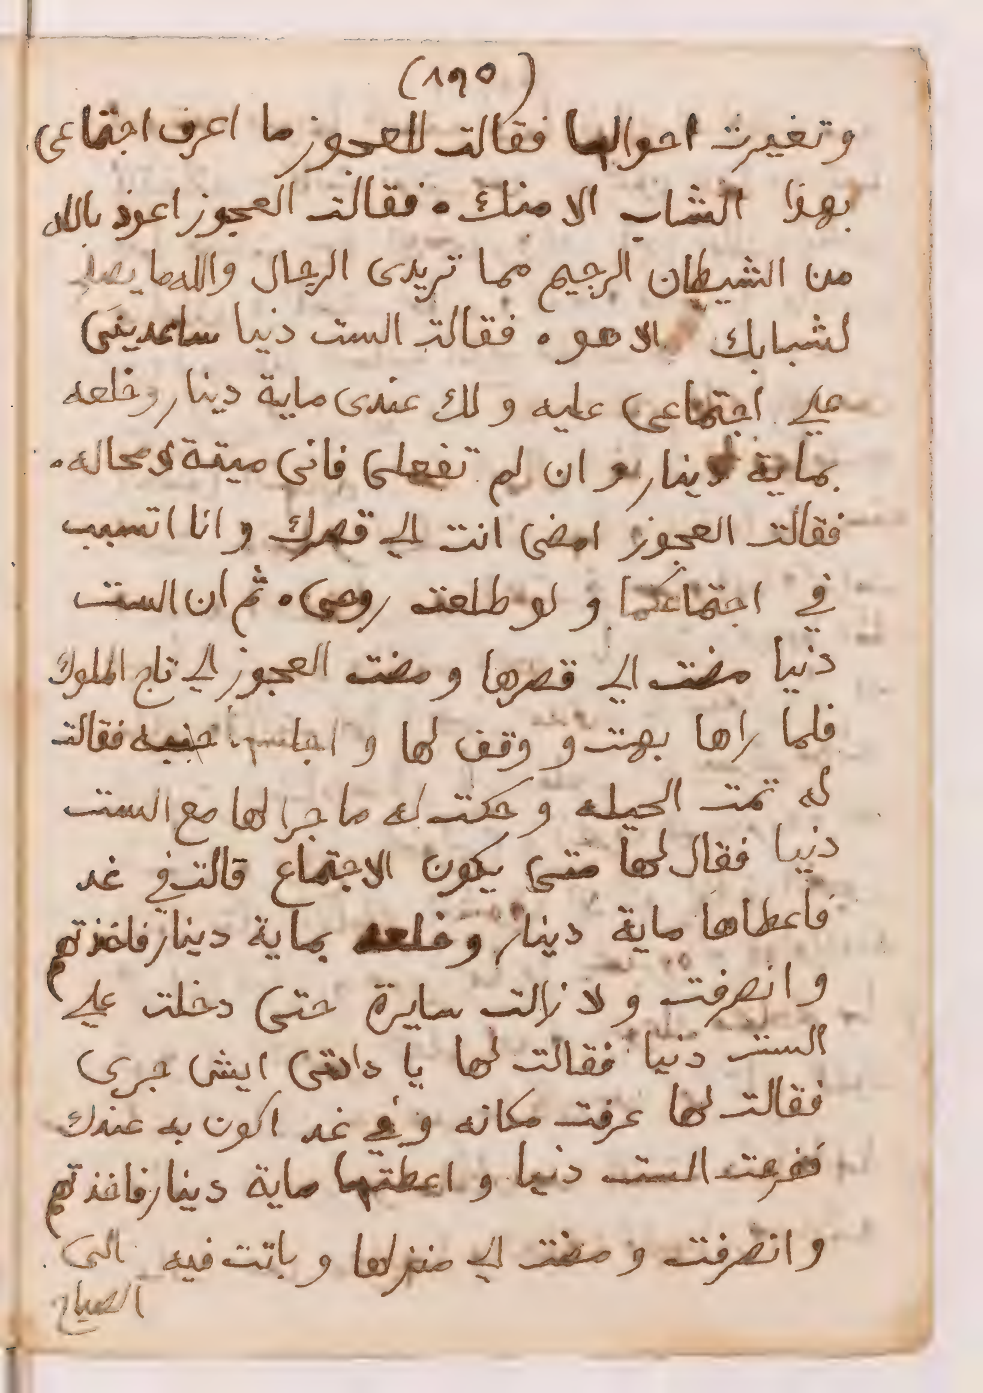 (١٩٥)
وتغيرت احوالها فقالت للعجوز ما اعرف اجتماعى
بهذا الشاب الا منك • فقالت العجوز اعوذ بالله
من الشيطان الرجيم مما تريدى الرجال والله ما يصلح
لشبابك الا هو • فقالت الست دنيا ساعدينى
على اجتماعى عليه و لك عندى ماية دينار وخلعه
بماية دينار و ان لم تفعلى فانى ميتة لا محاله •
فقالت العجوز امضى انت الى قصرك و انا اتسبب
في اجتماعكما و لو طلعت روحى • ثم ان الست
دنيا مضت الى قصرها و مضت العجوز الى تاج الملوك
فلما راها بهت و وقف لها و اجلسها جنبه فقالت
له تمت الحيله و حكت له ما جرا لها مع الست
دنيا فقال لها متى يكون الاجتماع قالت في غد
فاعطاها ماية دينار وخلعه بماية دينار فاخذتهم
و انصرفت و لا زالت سايرة حتى دخلت على
الست دنيا فقالت لها يا دادتى ايش جرى
فقالت لها عرفت مكانه و في غد اكون به عندك
ففرحت الست دنيا و اعطتها ماية دينار فاخذتهم
و انصرفت و مضت الى منزلها و باتت فيه الى
الصباح